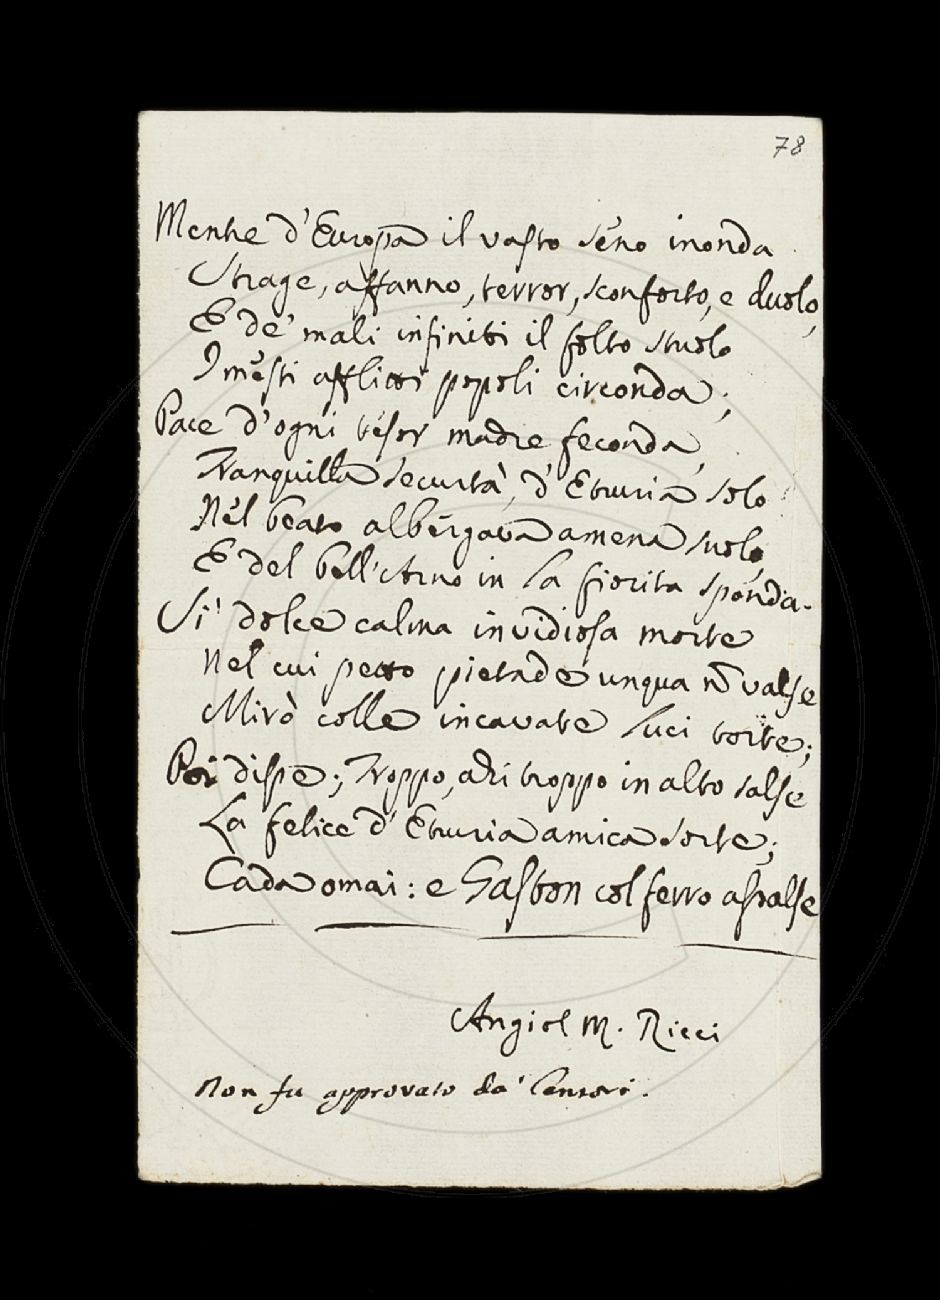 78
Mentre d'Europa il vasto séno inonda
Strage, affanno, terror, sconforto, e duolo,
E de' mali infiniti il folto stuolo
I mesti afflitti popoli circonda;
Pace d'ogni tesor madre feconda,
Tranquilla securtà, d'Etruria solo
Nel beato albergava ameno suolo,
E del bell'Arno in la fiorita sponda.
Si' dolce calma invidiosa morte
Nel cui petto pietade unqua nō valse
Mirò colle incavate luci torte;
Poi disse; Troppo, ahi troppo in alto salse
La felice d'Etruria amica sorte;
Cada omai: e Gaston col ferro assalse
Angiol M. Ricci
Non fu approvato da' Censori.